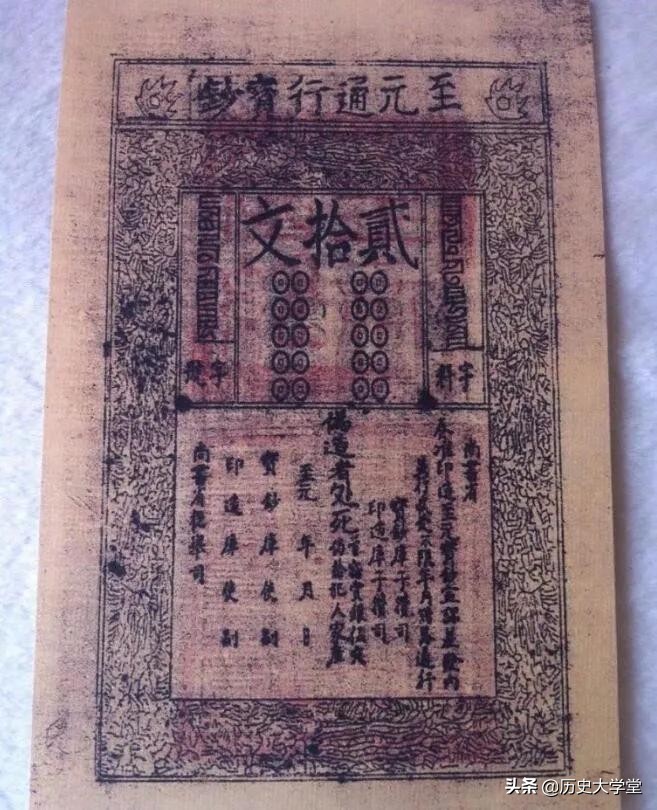 至元通行寶鈔
貳拾文
字料
字號
尚書省
奏准印造至元寶鈔宣課差發內
並行收受不限年月諸路通行
寶鈔庫子攢司
印造庫子攢司
偽造者處死
首告者賞銀伍錠
仍給犯人家產
至元 年 月 日
寶鈔庫使副
印造庫使副
尚書省提舉司
头条 @历史大学堂